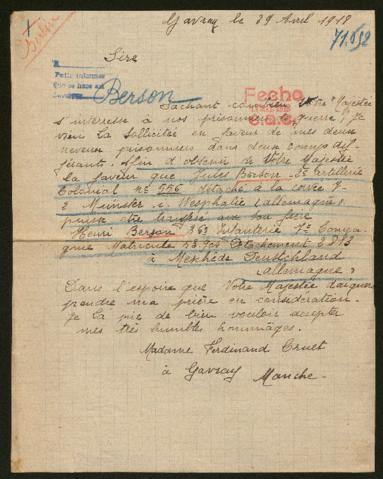 Gavray le 29 Avril 1918
71.652
Sire
Berson
Fecha
Sachant combien Votre Majesté
s'interresse à nos prisonniers de guerre, je
viens la sollicité en faveur de mes deux
neveux prisonniers dans deux camps dif-
férants. Afin d'obtenir de Votre Majesté
la faveur que Jules Berson 3e artillerie
Colonial No 556 détaché à la
2 Münster i. Westphalie (allemagne)
puisse être son frère
Henri Berson 363 Infanterie 7e Compa-
gnie Matricule Détachement
à Meschède Deutschland
(allemagne)
Dans l'espoire que Votre Majesté daignera
prendre ma prière en considération.
Je la prie de bien vouloir accepter
mes très humbles hommâges.
Madame Ferdinand Cruet
à Gavray Manche.